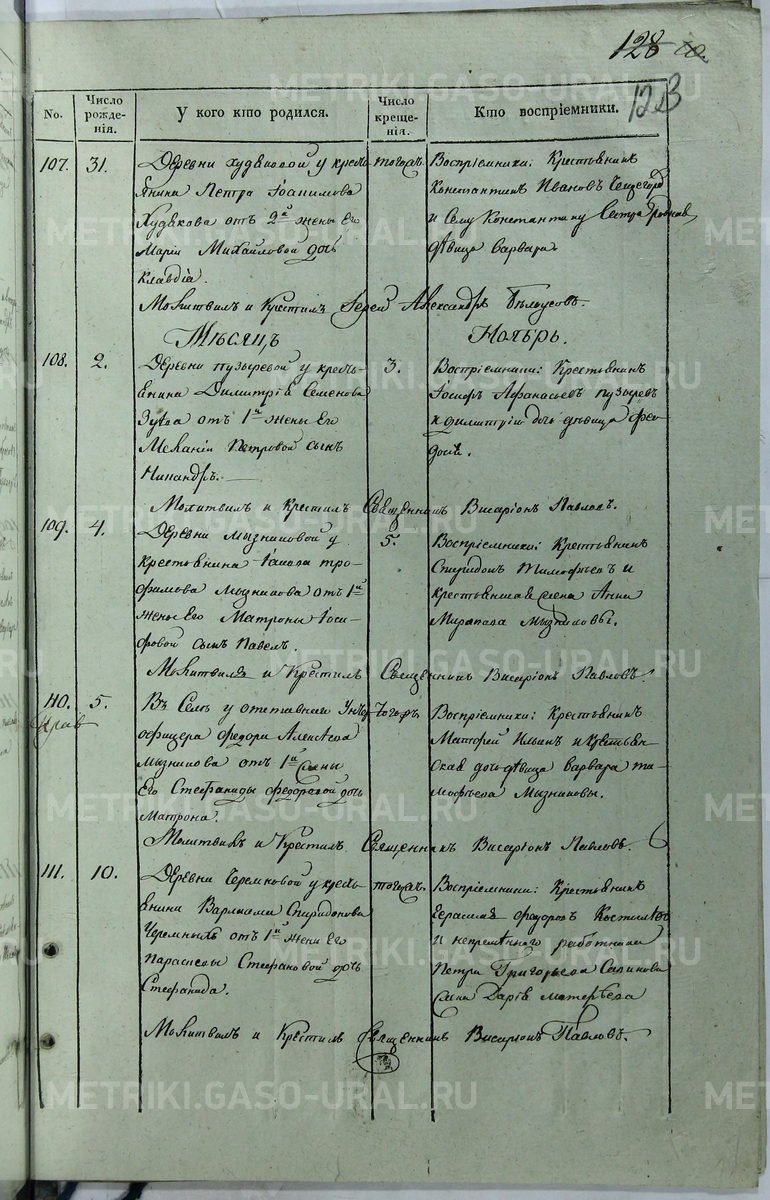 128
123
No.
Число рожде-нія.
У кого кто родился.
Число креще-нія.
Кто воспріемники.
107. 31.
Деревни Худяковой у кресть-
янина Петра Іоакимова
Худякова отъ 2й жены Его
Маріи Михайловой дочь
Клавдіа.
тогожъ
Воспріемники: Крестьянинъ
Константинъ Ивановъ
и Ему Константину Сестра Родная,
дѣвица Варвара
Молитвилъ и Крестилъ Іерей Александръ Бѣлоусовъ.
Мѣсяцъ Ноябрь.
108. 2.
Деревни Пузыревой у кресть-
янина Димитрія Семенова
Зуева отъ 1й жены Его
Меланіи Петровой сынъ
Никандръ.
3.
Воспріемники: Крестьянинъ
Іосифъ Афанасьевъ Пузыревъ
и Димитрію дочь дѣвица Фео-
досія.
Молитвилъ и Крестилъ Священникъ Висаріонъ Павловъ.
109. 4.
Деревни Мызниковой у
Крестьянина Іакова Тро-
фимова Мызникова отъ 1й
жены Его Матроны Іоси-
фовой сынъ Павелъ.
5.
Воспріемники: Крестьянинъ
Спиридонъ Тимофеевъ и
Крестьянина жена Анна
Мызниковы.
Молитвилъ и Крестилъ Священникъ Висаріонъ Павловъ.
110. 5.
Въ Селѣ у отставнаго Унтеръ
офицера Федора Алексѣева
Мызникова отъ 1й жены
Его Стефаниды Федоровой дочь
Матрона.
Тогожъ
Воспріемники: Крестьянинъ
Матфей Ильинъ и Крестьян-
ская дочь дѣвица Варвара Ти-
мофѣева Мызниковы.
Молитвилъ и Крестилъ Священникъ Висаріонъ Павловъ.
111. 10.
Деревни Черемновой у кресть-
янина Варлаама Спиридонова
Черемныхъ отъ 1й жены Его
Параскевы Стефановой дочь
Стефанида.
тогожъ.
Воспріемники: Крестьянинъ
Герасимъ Федоровъ Костылевъ
и непремѣннаго работника
Петра Григорьева Салникова
жена Дарія Матвѣева
Молитвилъ и Крестилъ Священникъ Висаріонъ Павловъ.
METRIKI.GASO-URAL.RU